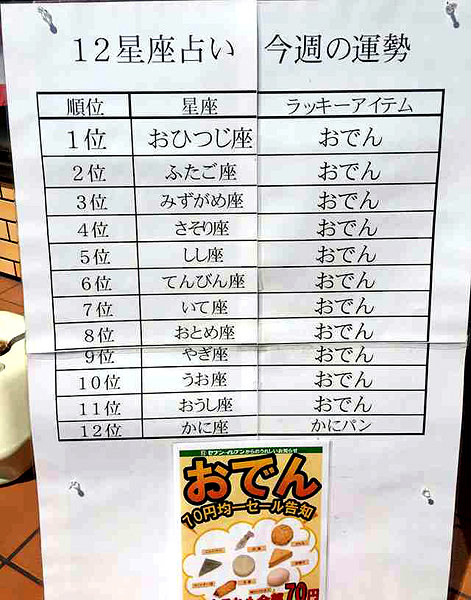 12星座占い 今週の運勢
順位 星座 ラッキーアイテム
1位 おひつじ座 おでん
2位 ふたご座 おでん
3位 みずがめ座 おでん
4位 さそり座 おでん
5位 しし座 おでん
6位 てんびん座 おでん
7位 いて座 おでん
8位 おとめ座 おでん
9位 やぎ座 おでん
10位 うお座 おでん
11位 おうし座 おでん
12位 かに座 かにパン
セブン-イレブンからのうれしいお知らせ
おでん
70円均一セール告知
70円